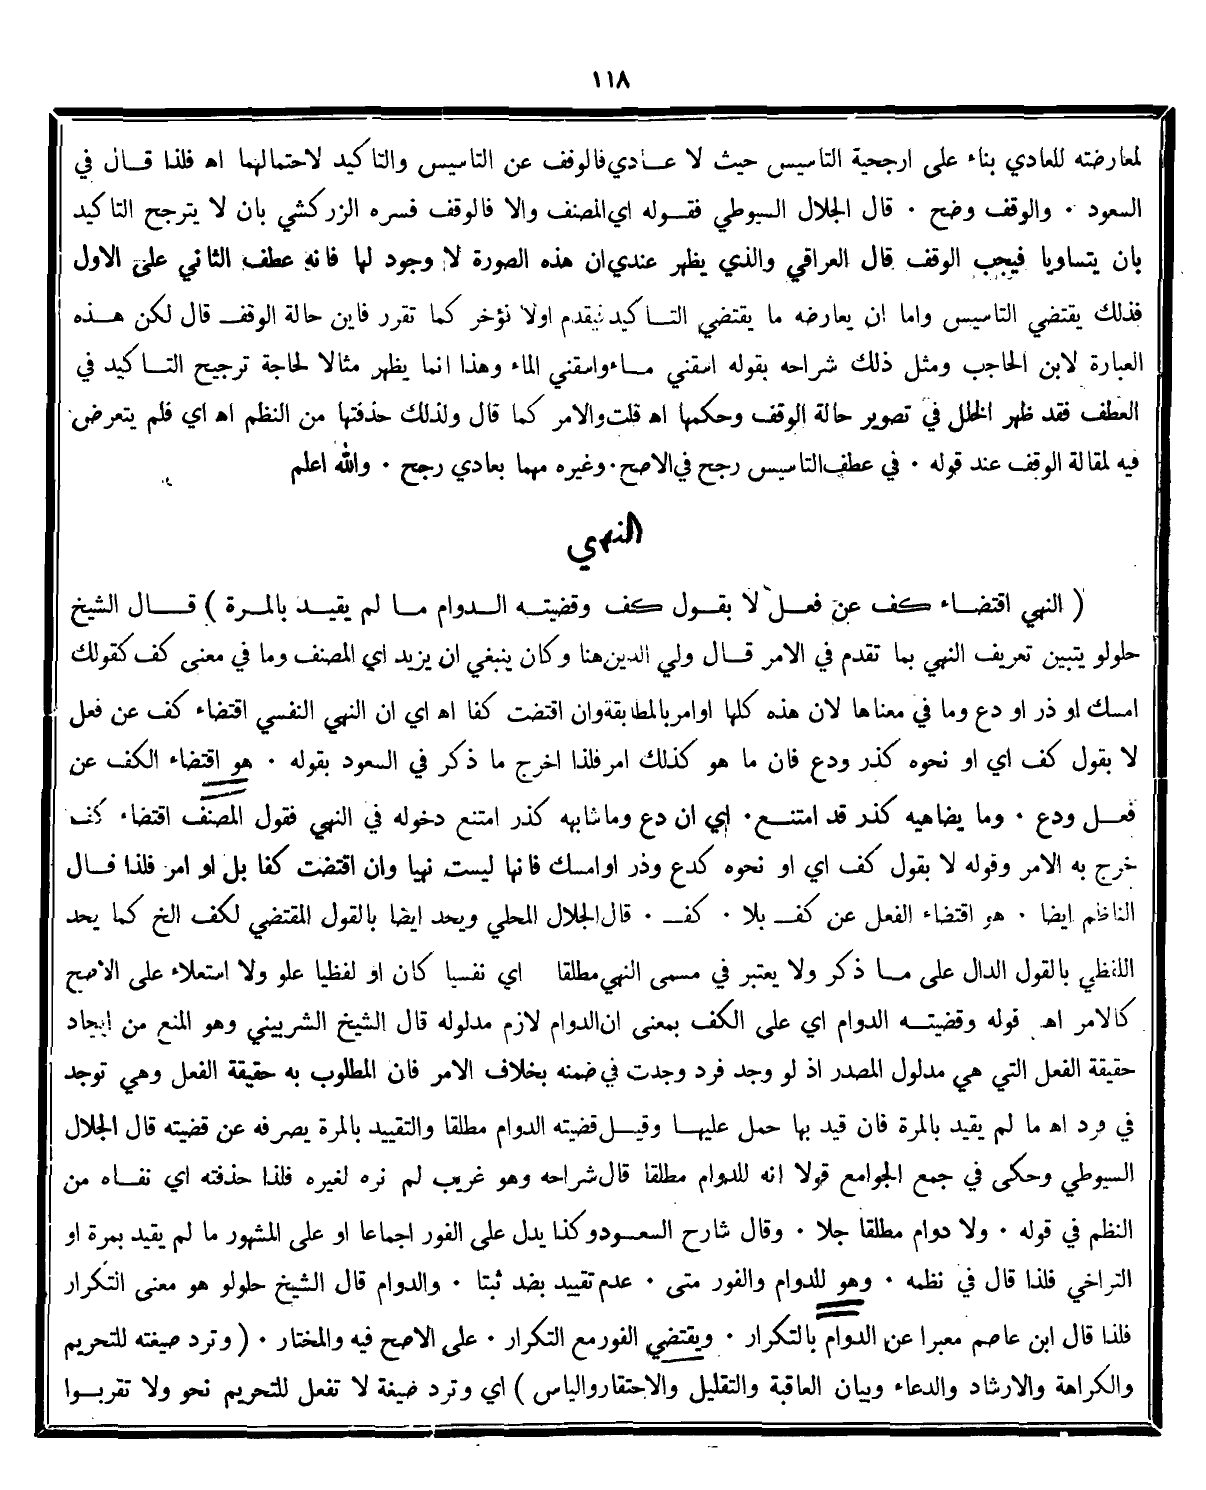 ١١٨
لمعارضته للعادي بناء على ارجحية التاسيس حيث لا عادي فالوقف عن التاسيس والتاكيد لاحتمالهما اه فلذا قال في
السعود ٠ والوقف وضح ٠ قال الجلال السيوطي فقوله اي المصنف والا فالوقف فسره الزركشي بان لا يترجح التاكيد
بان يتساويا فيجب الوقف قال العراقي والذي يظهر عندي ان هذه الصورة لا وجود لها فانه عطف الثاني على الاول
فذلك يقتضي التاسيس واما ان يعارضه ما يقتضي التاكيد فيقدم اولا نؤخر كما تقرر فاين حالة الوقف قال لكن هذه
العبارة لابن الحاجب ومثل ذلك شراحه بقوله اسقني ماء واسقني الماء وهذا انما يظهر مثالا لحاجة ترجيح التاكيد في
العطف فقد ظهر الخلل في تصوير حالة الوقف وحكمها اه قلت والامر كما قال ولذلك حذفتها من النظم اه اي فلم يتعرض
فيه لمقالة الوقف عند قوله ٠ في عطف التاسيس رجح في الاصح ٠ وغيره مهما بعادي رجح ٠ والله اعلم
النهي
( النهي اقتضاء كف عن فعل لا بقول كف وقضيته الدوام ما لم يقيد بالمرة ) قال الشيخ
حلولو يتبين تعريف النهي بما تقدم في الامر قال ولي الدين هنا وكان ينبغي ان يزيد اي المصنف وما في معنى كف كقولك
امسك او ذر او دع وما في معناها لان هذه كلها اوامر بالمطابقة وان اقتضت كفا اه اي ان النهي النفسي اقتضاء كف عن فعل
لا بقول كف اي او نحوه كذر ودع فان ما هو كذلك امر فلذا اخرج ما ذكر في السعود بقوله ٠ هو اقتضاء الكف عن
فعل ودع ٠ وما يضاهيه كذر قد امتنع ٠ اي ان دع وماشابهه كذر امتنع دخوله في النهي فقول المصنف اقتضاء كف
خرج به الامر وقوله لا بقول كف اي او نحوه كدع وذر اوامسك فانها ليست نهيا وان اقتضت كفا بل او امر فلذا قال
الناظم ايضا ٠ هو اقتضاء الفعل عن كف بلا ٠ كف ٠ قال الجلال المحلي ويحد ايضا بالقول المقتضي لكف الخ كما يحد
اللفظي بالقول الدال على ما ذكر ولا يعتبر في مسمى النهي مطلقا اي نفسيا كان او لفظيا علو ولا استعلاء على الاصح
كالامر اه قوله وقضيته الدوام اي على الكف بمعنى ان الدوام لازم مدلوله قال الشيخ الشربيني وهو المنع من ايجاد
حقيقة الفعل التي هي مدلول المصدر اذ لو وجد فرد وجدت في ضمنه بخلاف الامر فان المطلوب به حقيقة الفعل وهي توجد
في فرد اه ما لم يقيد بالمرة فان قيد بها حمل عليها وقيل قضيته الدوام مطلقا والتقييد بالمرة يصرفه عن قضيته قال الجلال
السيوطي وحكى في جمع الجوامع قولا انه للدوام مطلقا قال شراحه وهو غريب لم نره لغيره فلذا حذفته اي نفاه من
النظم في قوله ٠ ولا دوام مطلقا جلا ٠ وقال شارح السعود وكذا يدل على الفور اجماعا او على المشهور ما لم يقيد بمرة او
التراخي فلذا قال في نظمه ٠ وهو للدوام والفور متى ٠ عدم تقييد بضد ثبتا ٠ والدوام قال الشيخ حلولو هو معنى التكرار
فلذا قال ابن عاصم معبرا عن الدوام بالتكرار ٠ ويقتضي الفور مع التكرار ٠ على الاصح فيه والمختار ٠ ( وترد صيغته للتحريم
والكراهة والارشاد والدعاء وبيان العاقبة والتقليل والاحتقار والياس ) اي وترد صيغة لا تفعل للتحريم نحو ولا تقربوا